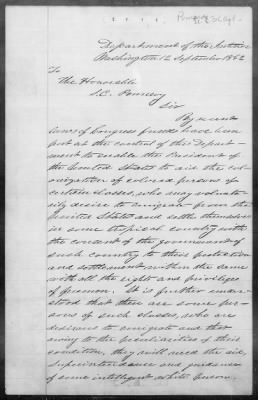 Pomeroy
Department of the Interior
Washington 12 September 1862
To
The Honorable
S.C. Pomeroy
Sir
By recent
laws of Congress funds have been
put at the control of this Depart-
ment to enable the President of
the United States to aid the col-
onization of colored persons of
certain classes, who may volunta-
rily desire to emigrate from the
United States and settle themselves
in some tropical country with
the consent of the government of
such country to their protection
and settlement within the same
with all the rights and privileges
of freemen. It is further under-
stood that there are some per-
sons of such classes, who are
desirous to emigrate and that
owing to the peculiarities of their
condition, they will need the aid,
superintendance and guidance
of some intelligent white person.